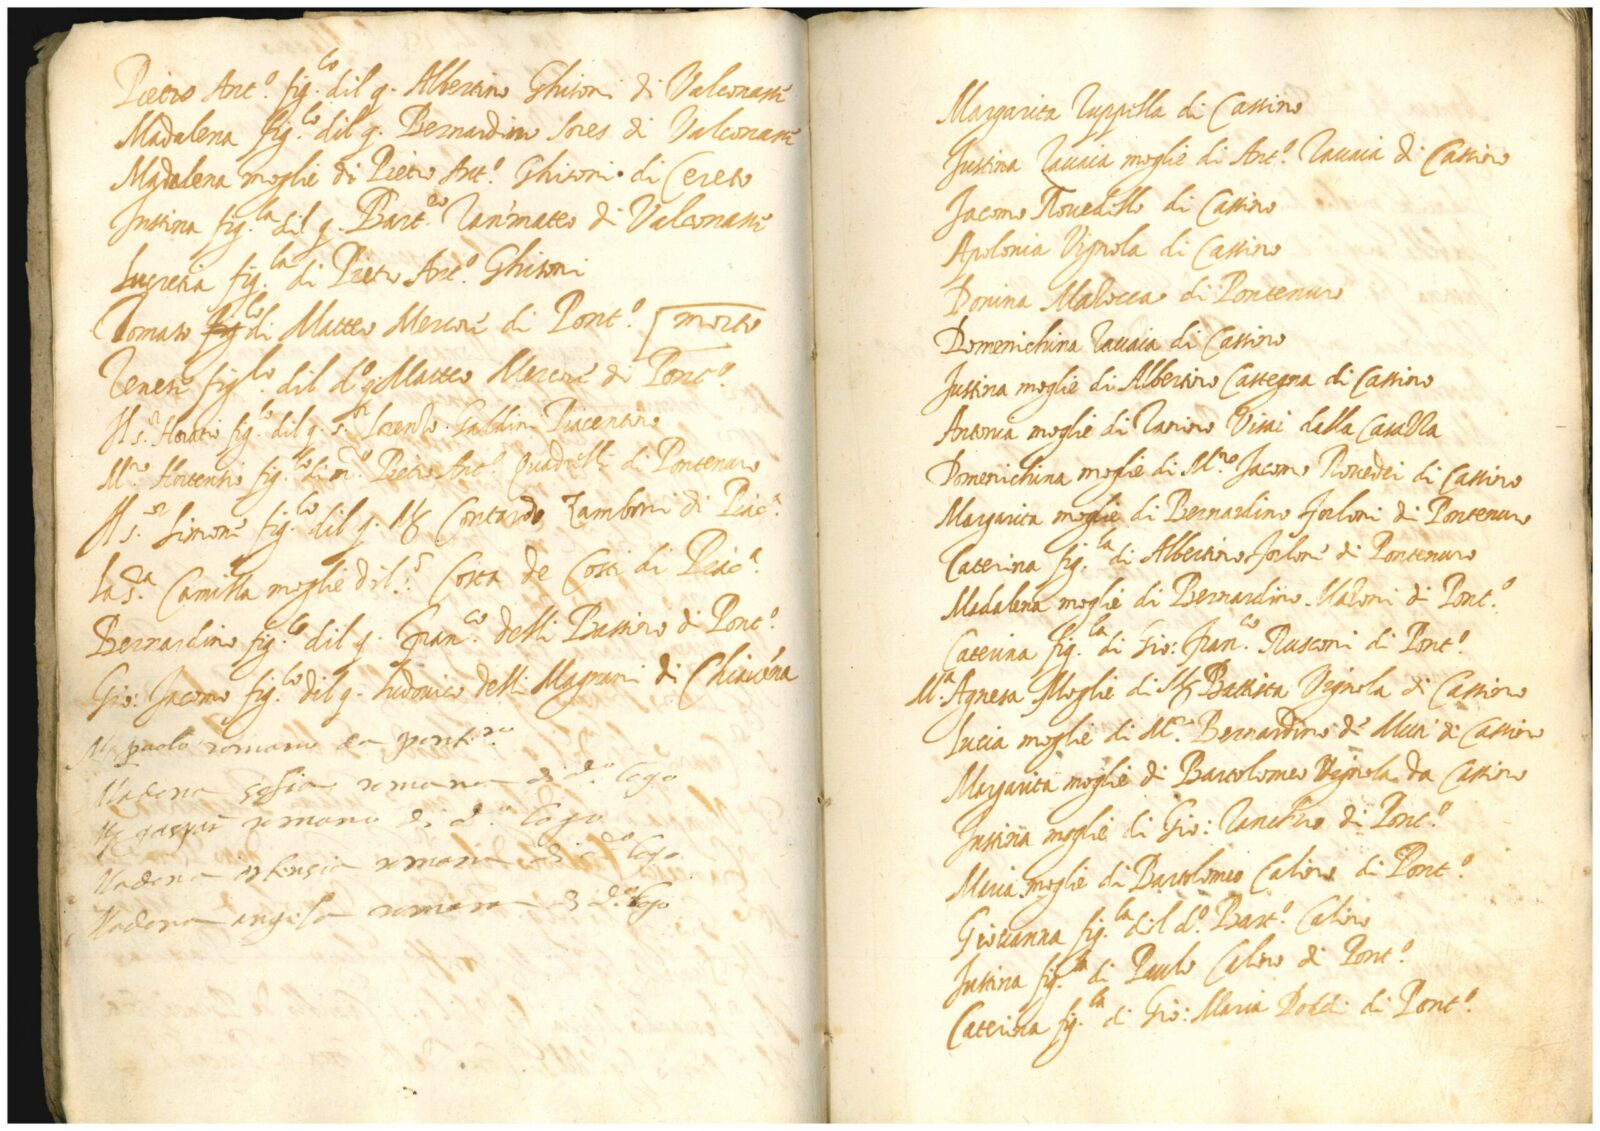 Pietro Ant.º fig.lo dil q. Albertino Ghisoni di Valconassi
Madalena fig.la dil q. Bernardino Sores di Valconassi
Madalena moglie di Pietro Ant.º Ghisoni di Cereto
Justina fig.la dil q. Bart.eo di Valconassi
Lucretia fig.la di Pietro Ant.º Ghisoni
Tomaso di Matteo di Pont.º morto
fig.lo dil d.º q. Matteo di Pont.º
Il s.r Horatio fig.lo dil q. s.r Lorenzo Piacentino
M.ro Hortensio fig.lo di m.ro Pietro Ant.º Quadrelli di Pontenuro
Il s.or Simone fig.lo dil q. Contardo Zamboni di Piac.a
La S.ra Camilla moglie dil s.r Costa de Costi di Piac.a
Bernardino fig.lo dil q. Fran.co delli Bassino di Pont.º
Gio: Jacomo fig.lo dil q. Ludovico delli Magnani di
paolo romano da pont.ro
Madona sofia romana di d.º logo
gaspar romano di d.º logo
Madona romana di d.º logo
Madona angela romana di d.º logo
Margarita di Cassino
Justina Zavaia moglie di Ant.º Zavaia di Cassino
Jacomo di Cassino
Apolonia Vignola di Cassino
Donina di Pontenuro
Domenichina Zavaia di Cassino
Justina moglie di Albertino Castegna di Cassino
Antonia moglie di Zanino dalla
Domenichina moglie di M.ro Jacomo di Cassino
Margarita moglie di Bernardino di Pontenuro
Caterina fig.la di Albertino di Pontenuro
Madalena moglie di Bernardino di Pont.º
Caterina fig.la di Gio: Fran.co Rusconi di Pont.º
M.a Agnesa Moglie di Battista Vignola di Cassino
Lucia moglie di M.ro Bernardino de di Cassino
Margarita moglie di Bartolomeo Vignola da Cassino
Justina moglie di Gio: di Pont.º
Maria moglie di Bartolomeo Calino di Pont.º
Giovanna fig.la dil d.º Bart.º Calino
Justina fig.la di Paulo Calino di Pont.º
Caterina fig.la di Gio: Maria di Pont.º